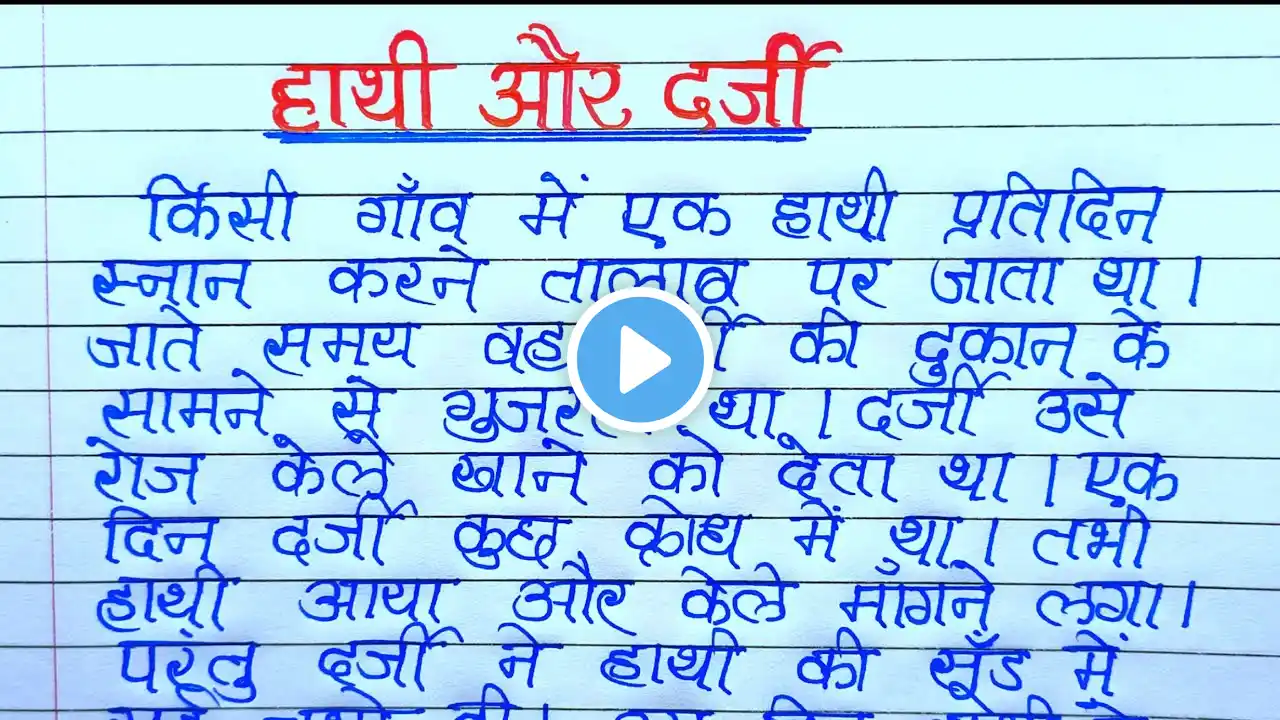 हाथी और दर्जी
किसी गाँव में एक हाथी प्रतिदिन
स्नान करने तालाब पर जाता था।
जाते समय वह की दुकान के
सामने से था। दर्जी उसे
रोज केले खाने को देता था। एक
दिन दर्जी कुछ क्रोध में था। तभी
हाथी आया और केले माँगने लगा।
परंतु दर्जी ने हाथी की सूँड में